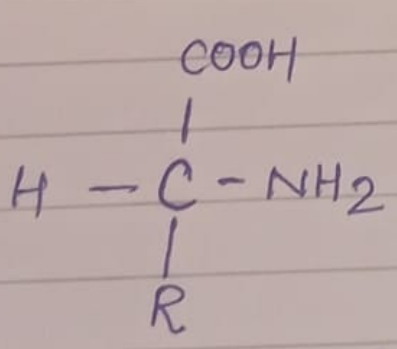 COOH
|
H - C - NH2
|
R